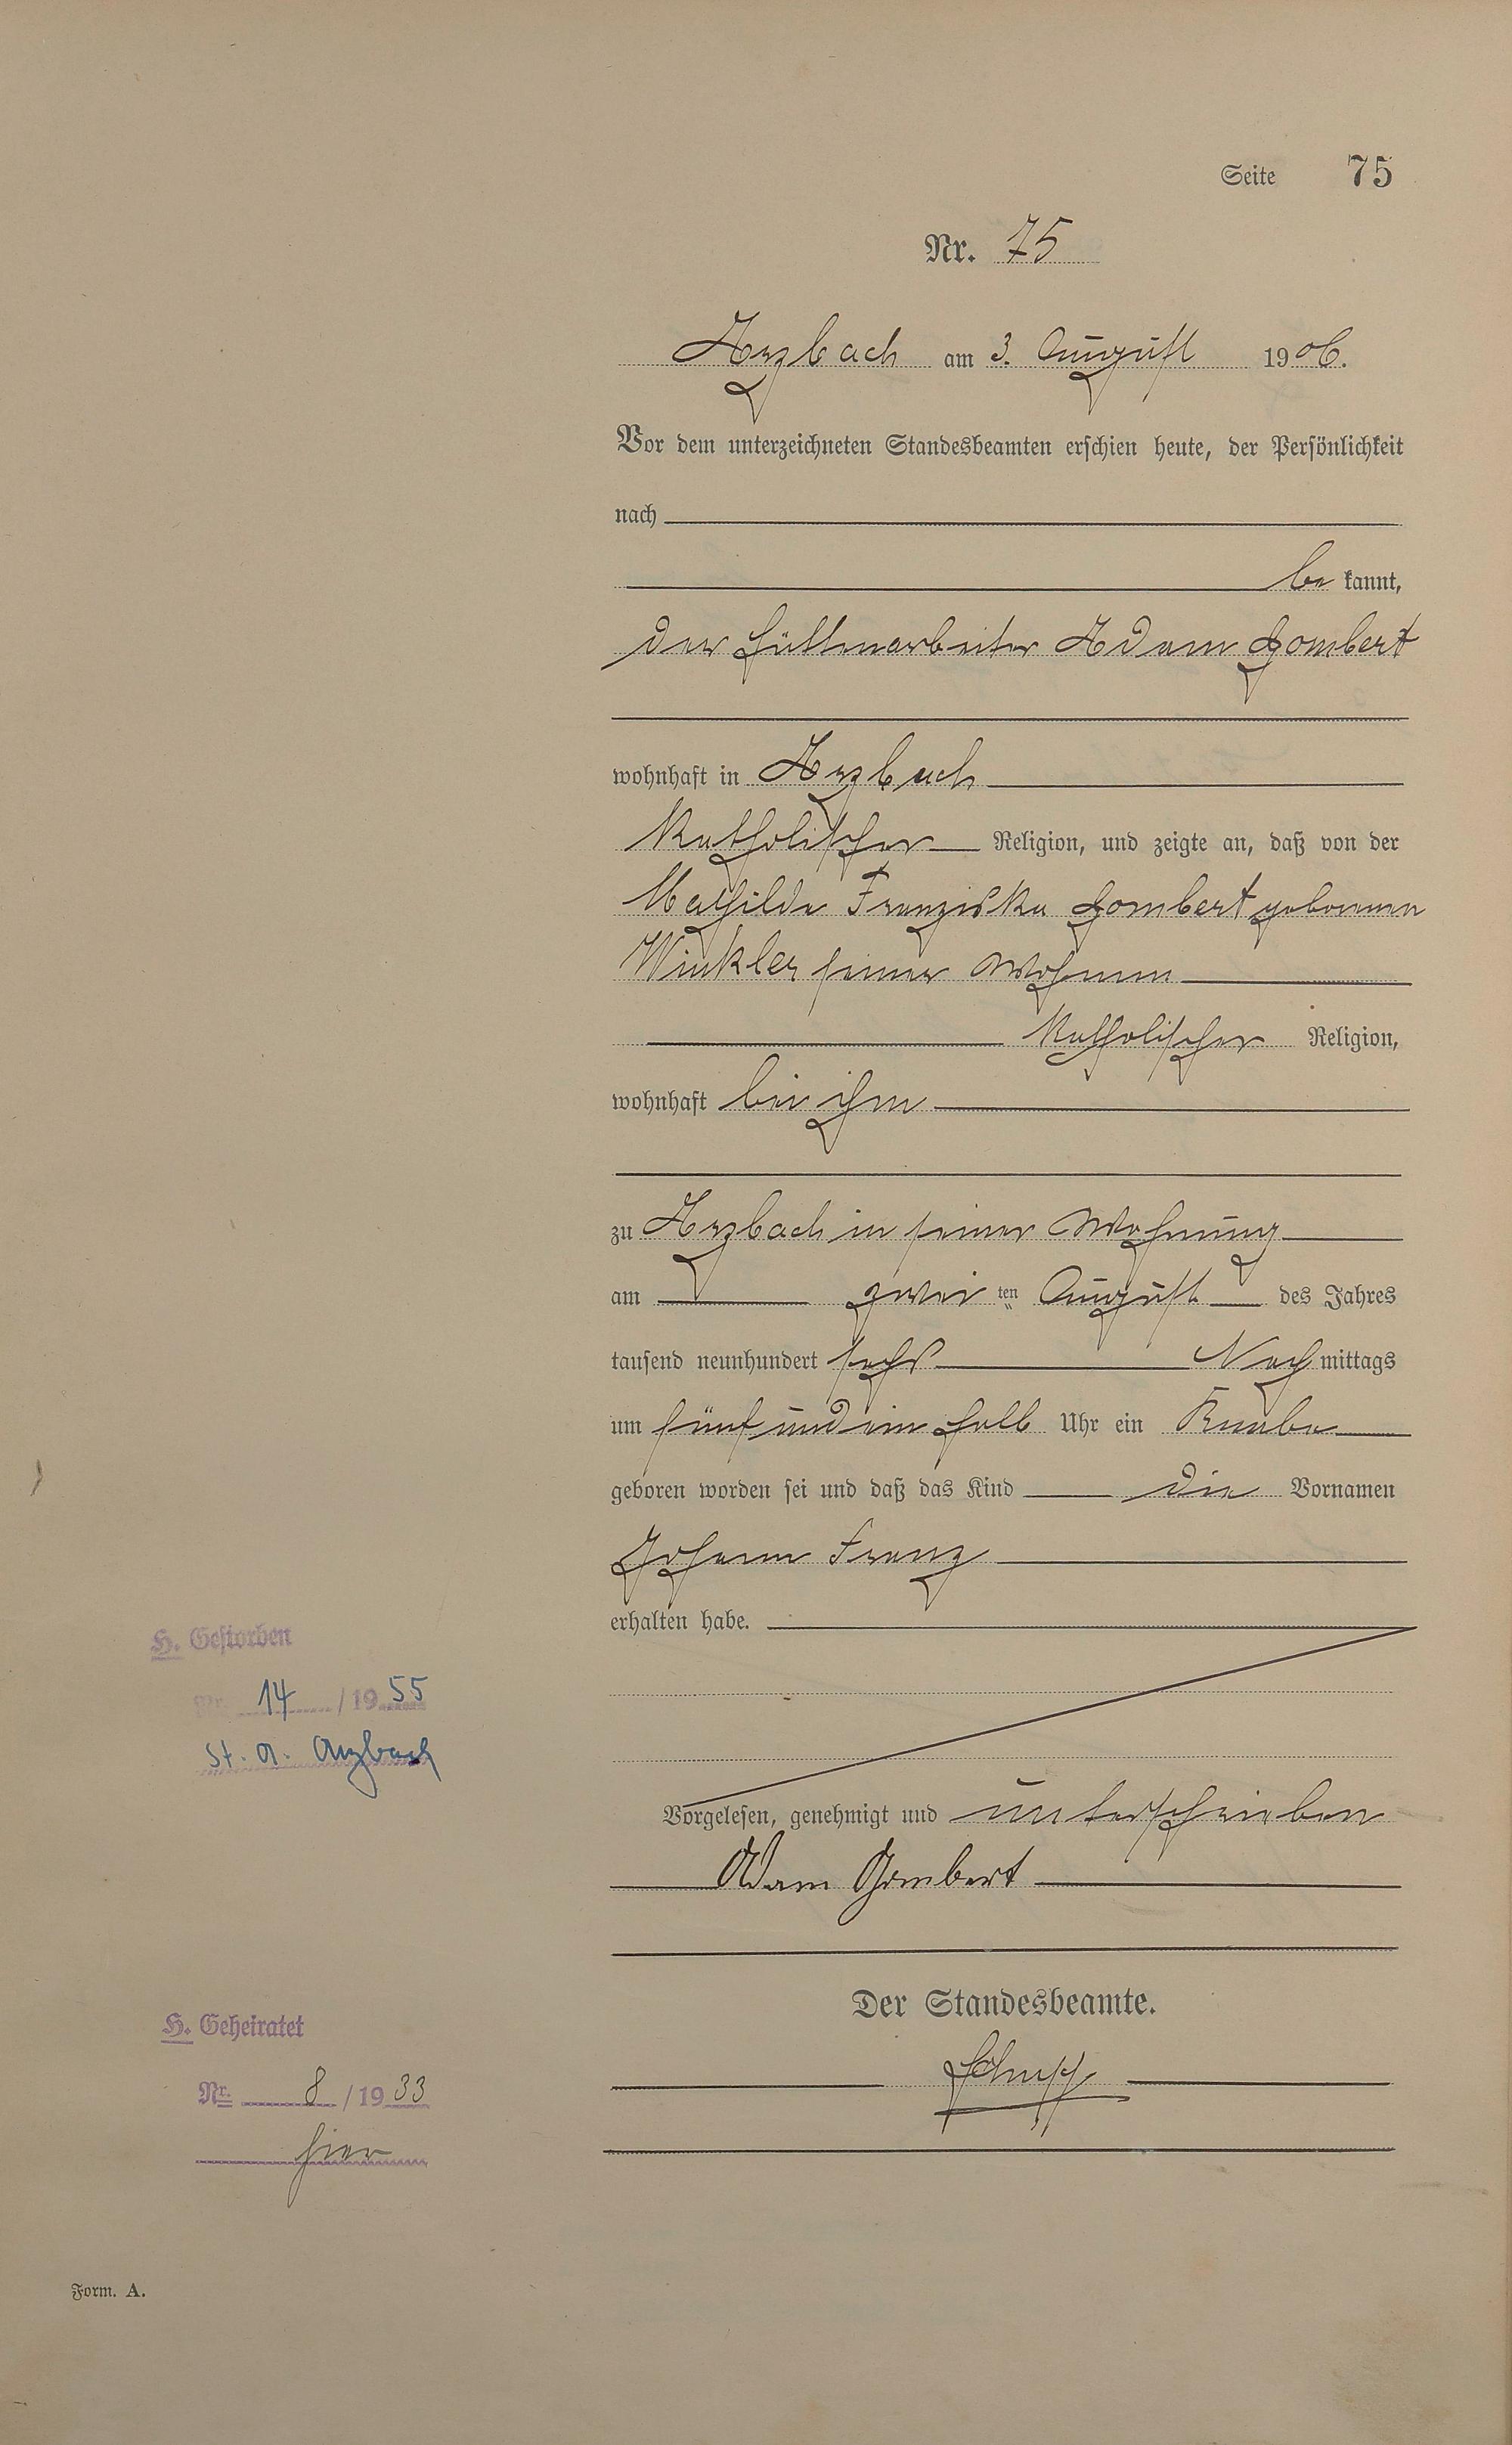 Seite 75
Nr. 75
Arzbach am 3. August 1906.
Vor dem unterzeichneten Standesbeamten erschien heute, der Persönlichkeit
nach
be kannt,
der Hüttenarbeiter Adam Gombert
wohnhaft in Arzbach
Katholischer Religion, und zeigte an, daß von der
Mathilde Franziska Gombert geborenen
Winkler seiner
Katholischer Religion,
wohnhaft bei ihm
zu Arzbach in seiner Wohnung
am zwei ten August des Jahres
tausend neunhundert sechs Nach mittags
um fünf und ein halb Uhr ein Knabe
geboren worden sei und daß das Kind die Vornamen
Johann Franz
erhalten habe.
H. Gestorben
Nr. 14 / 1955
St. A. Arzbach
Vorgelesen, genehmigt und unterschrieben
Adam Gombert
Der Standesbeamte.
H. Geheiratet
Nr. 8 / 1933
hier
Form. A.